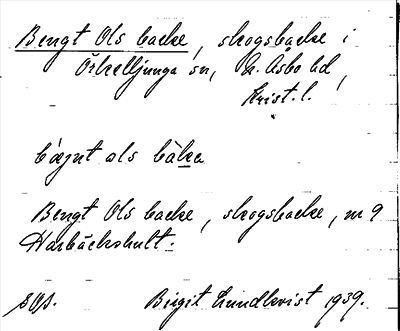 Bengt Ols backe, skogsbacke i
Örkelljunga sn, N. Åsbo hd,
Krist. l.
bæŋt ols bàka
Bengt Ols backe, skogsbacke, nr 9
Harbäckshult.
Birgit Lundkvist 1939.